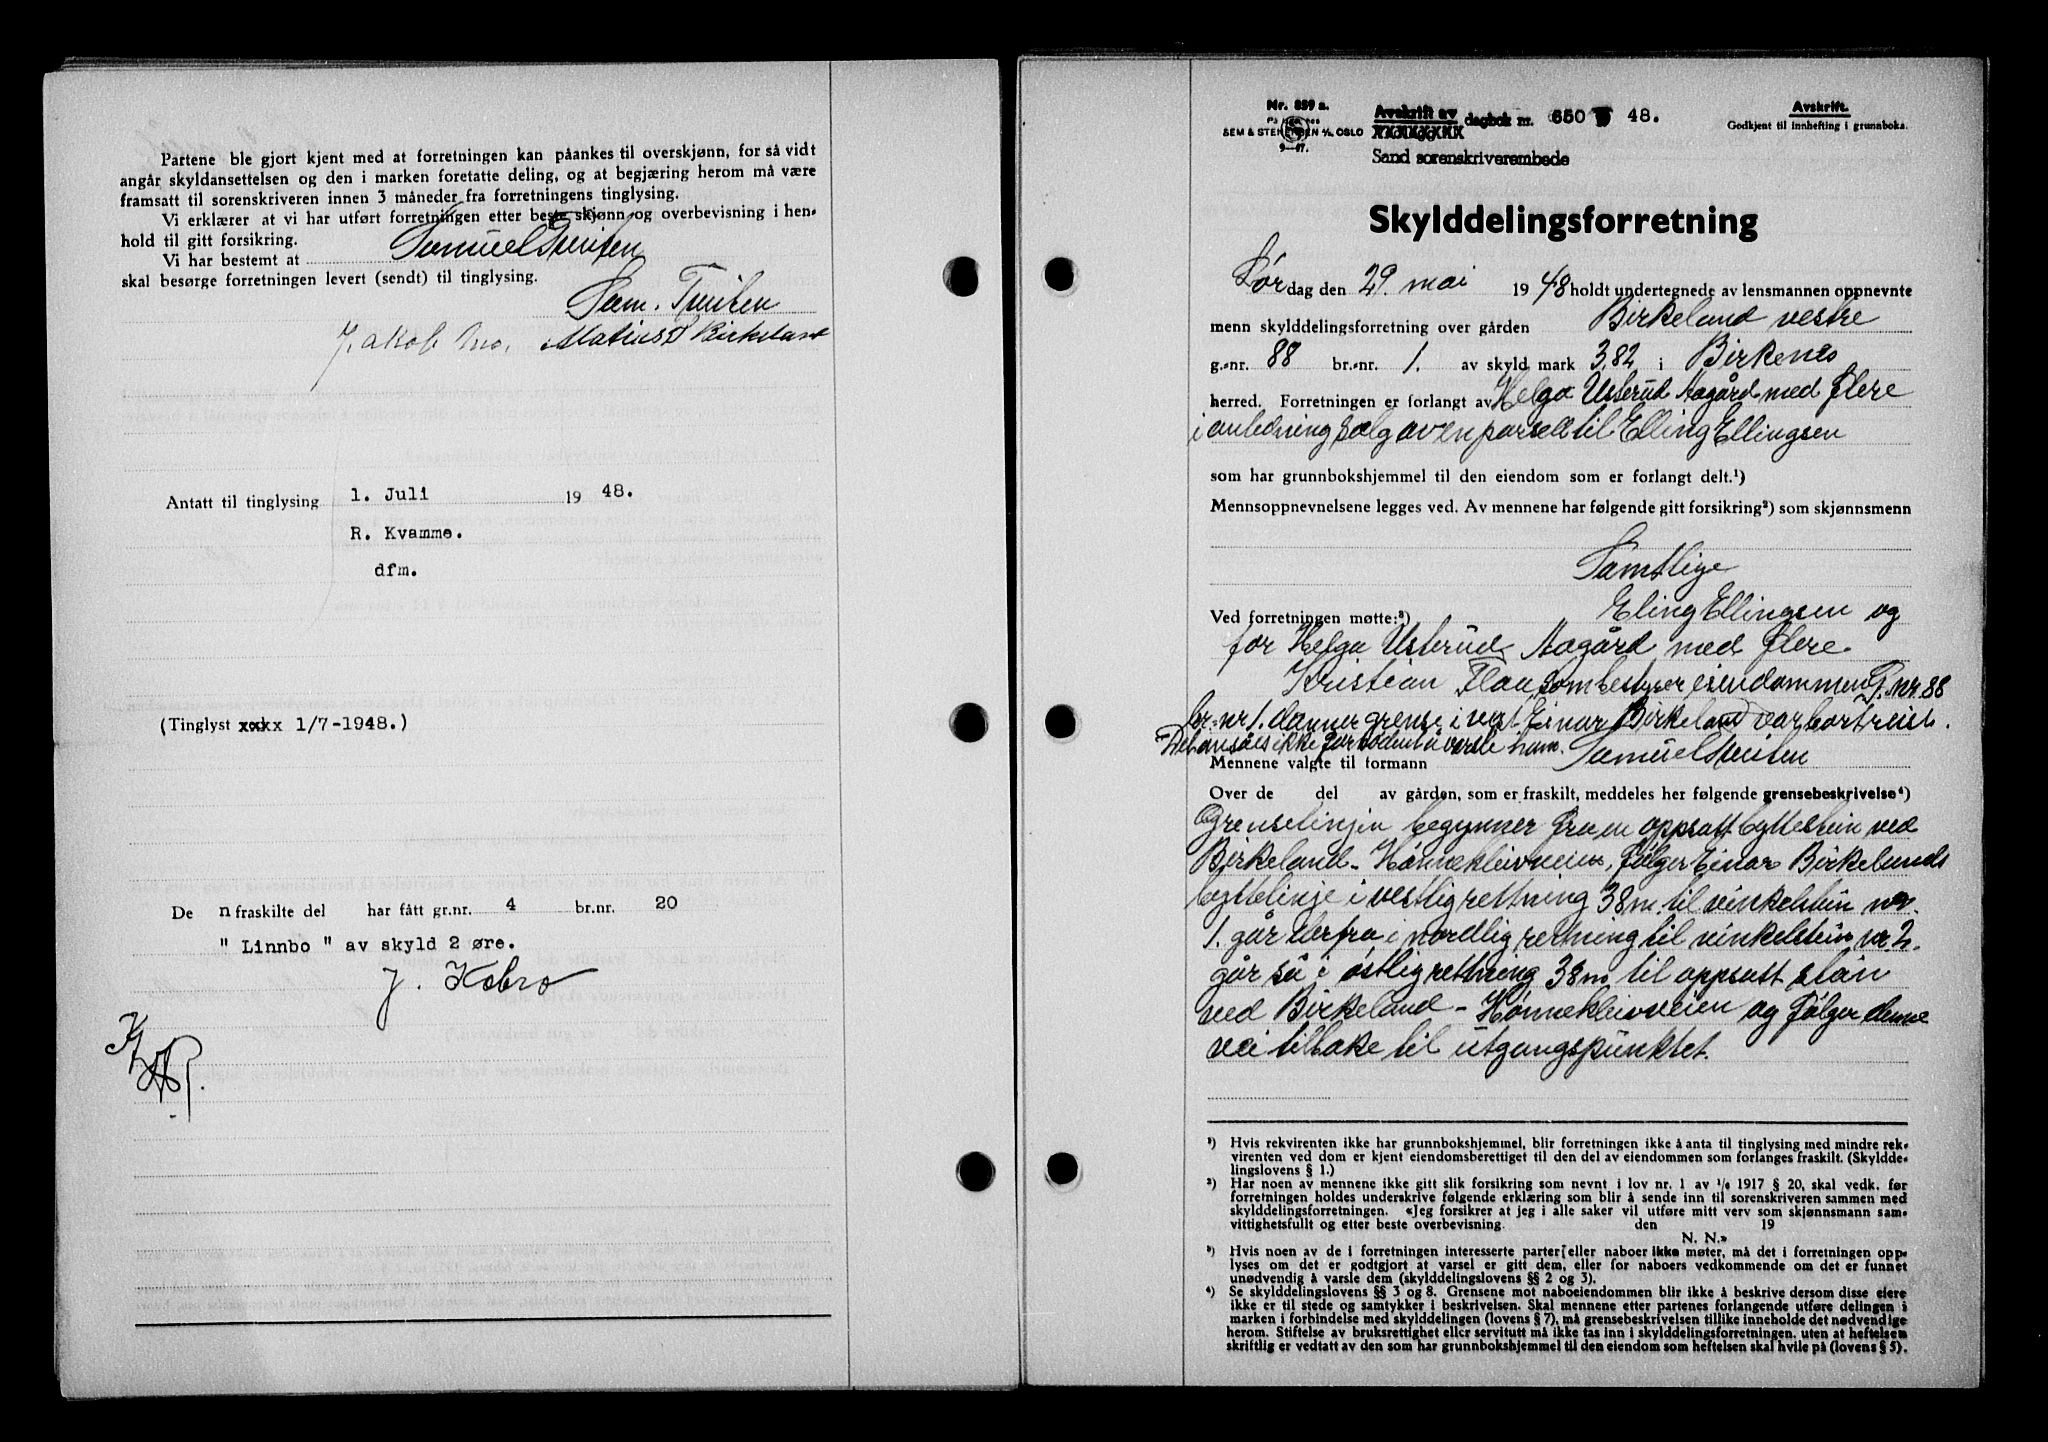 Partene ble gjort kjent med at forretningen kan påankes til overskjønn, for så vidt
angår skyldansettelsen og den i marken foretatte deling, og at begjæring herom må være
framsatt til sorenskriveren innen 3 måneder fra forretningens tinglysing.
Vi erklærer at vi har utført forretningen etter beste skjønn og overbevisning i hen-
hold til gitt forsikring.
Vi har bestemt at Samuel Tveiten
skal besørge forretningen levert (sendt) til tinglysing.
Sam. Tveiten
Jakob Mo. Matius Birkeland
Antatt til tinglysing 1. Juli 19 48.
R. Kvamme.
dfm.
(Tinglyst xxxx 1/7-1948.)
De n fraskilte del har fått gr.nr. 4 br.nr. 20
" Linnbo " av skyld 2 øre.
J. Kobro
Nr. 859 a.
SEM & STENERSEN A/S OSLO
9—47.
Avskrift av
XXXXXXXX dagbok nr. 650 48.
Sand sorenskriverembede
Avskrift.
Godkjent til innhefting i grunnboka.
Skylddelingsforretning
Lør dag den 29. mai 19 48 holdt undertegnede av lensmannen oppnevnte
menn skylddelingsforretning over gården Birkeland vestre
g.-nr. 88 br.-nr. 1. av skyld mark 3,82 i Birkenes
herred. Forretningen er forlangt av Helga Usterud Aagård med flere
i anledning salg av en parsell til Elling Ellingsen
som har grunnbokshjemmel til den eiendom som er forlangt delt.¹)
Mennsoppnevnelsene legges ved. Av mennene har følgende gitt forsikring²) som skjønnsmenn
Samtlige
Ved forretningen møtte:³) Eling Ellingsen og
for Helga Usterud Aagård med flere
Kristian Flaa som bestyrer eiendommen G.nr. 88
br.-nr 1. danner grense i vest Einar Birkeland var bortreist.
Det ansåes ikke for nødent å varsle ham.
Mennene valgte til formann Samuel Tveiten
Over de del av gården, som er fraskilt, meddeles her følgende grensebeskrivelse⁴)
Grenselinjen begynner fra en oppsatt byttestein ved
Birkeland - Hønnekleivveien, følger Einar Birkelands
byttelinje i vestlig rettning 38 m. til vinkelstein nr.
1. går derfra i nordlig rettning til vinkelstein nr. 2.
går så i østlig rettning 38 m til oppsatt stein
ved Birkeland - Hønnekleivveien og følger denne
vei tilbake til utgangspunktet.
¹) Hvis rekvirenten ikke har grunnbokshjemmel, blir forretningen ikke å anta til tinglysing med mindre rek-
virenten ved dom er kjent eiendomsberettiget til den del av eiendommen som forlanges fraskilt. (Skyldde-
lingslovens § 1.)
²) Har noen av mennene ikke gitt slik forsikring som nevnt i lov nr. 1 av 1/6 1917 § 20, skal vedk. før
forretningen holdes underskrive følgende erklæring som blir å sende inn til sorenskriveren sammen med
skylddelingsforretningen. «Jeg forsikrer at jeg i alle saker vil utføre mitt verv som skjønnsmann sam-
vittighetsfullt og etter beste overbevisning. den 19
N. N.»
³) Hvis noen av de i forretningen interesserte parter eller naboer ikke møter, må det i forretningen opp-
lyses om det er godtgjort at varsel er gitt dem, eller for naboers vedkommende om det er funnet
unødvendig å varsle dem (skylddelingslovens §§ 2 og 3).
⁴) Se skylddelingslovens §§ 3 og 8. Grensene mot naboeiendommen blir ikke å beskrive dersom disse eiere
ikke er til stede og samtykker i beskrivelsen. Skal mennene etter partenes forlangende utføre delingen i
marken i forbindelse med skylddelingen (lovens § 7), må grensebeskrivelsen tillike inneholde det nødvendige
herom. Stiftelse av bruksrettighet eller servitutt må ikke tas inn i skylddelingsforretningen, uten at heftelsen
skriftlig er vedtatt av den som har grunnbokshjemmel til den eiendom som heftelsen skal hvile på (lovens § 5).